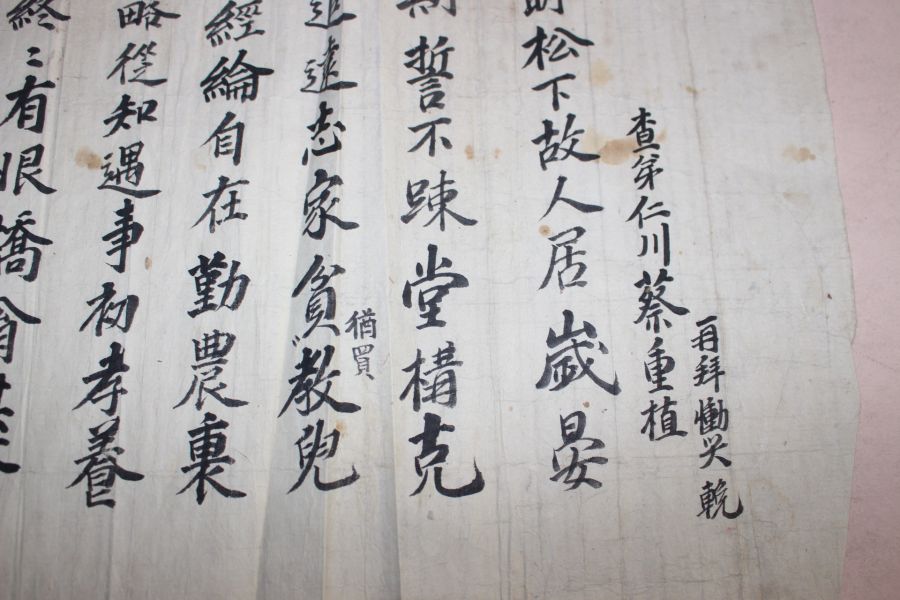 查弟仁川蔡重植
再拜慟哭輓
松下故人居歲晏
誓不踈堂構克
追遠志家貧猶買教兒
經綸自在勤農裏
略從知遇事初孝養
終〻有恨橋翁